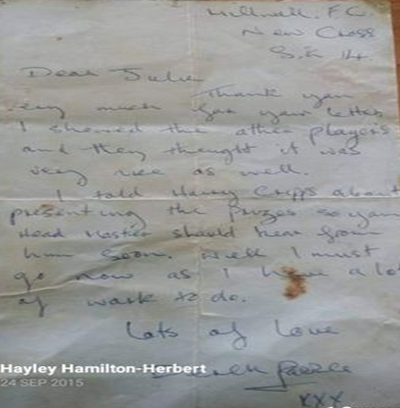 Millwall. F.C.
New Cross
S.E 14.
Dear Julie
Thank you
very much for your letter
I showed the other players
and they thought it was
very nice as well.
I told Harry Cripps about
presenting the prizes so your
Head Master should hear from
him soon. Well I must
go now as I have a lot
of work to do.
Lots of love
XXX
Hayley Hamilton-Herbert
24 SEP 2015